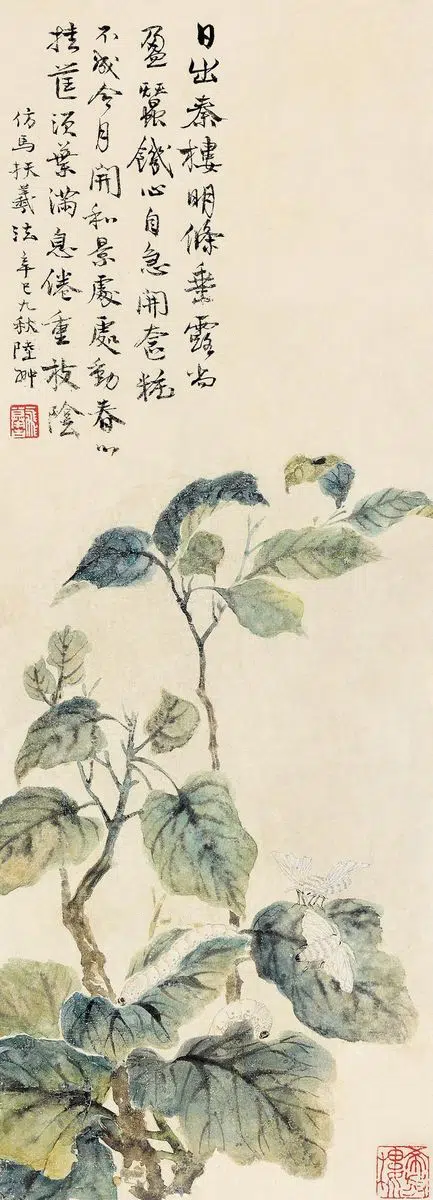 日出秦樓明條垂露尚
盈蠶饑心自急開奩粧
不成令月開和景處處動春心
挂筐須葉滿息倦重枝陰
仿馬扶羲法 辛巳九秋 陸翀